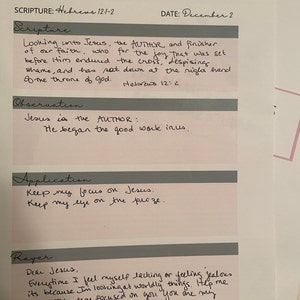 SCRIPTURE: Hebrews 12:1-2 DATE: December 2
Scripture
Looking unto Jesus, the AUTHOR and finisher
of our faith, who for the joy that was set
before Him endured the cross, despising
shame, and has sat down at the right hand
of the throne of God.
Hebrews 12:2
Observation
Jesus is the AUTHOR:
He began the good work in us.
Application
Keep my focus on Jesus.
Keep my eye on the prize.
Prayer
Dear Jesus,
Everytime I feel myself lacking or feeling jealous
its because I'm looking at worldly things. Help me
focused on you. You are my